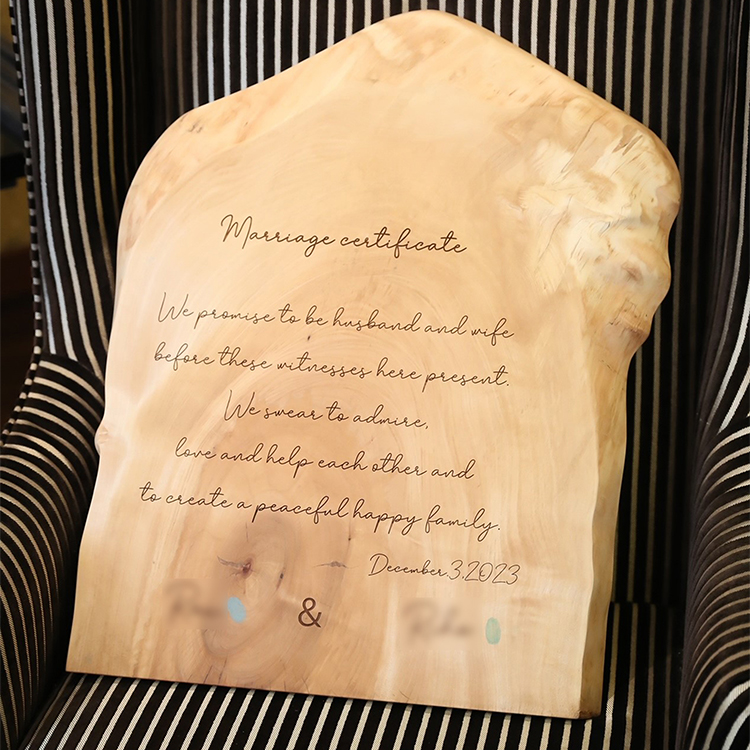 Marriage certificate
We promise to be husband and wife
before these witnesses here present.
We swear to admire,
love and help each other and
to create a peaceful happy family.
December.3.2023
&